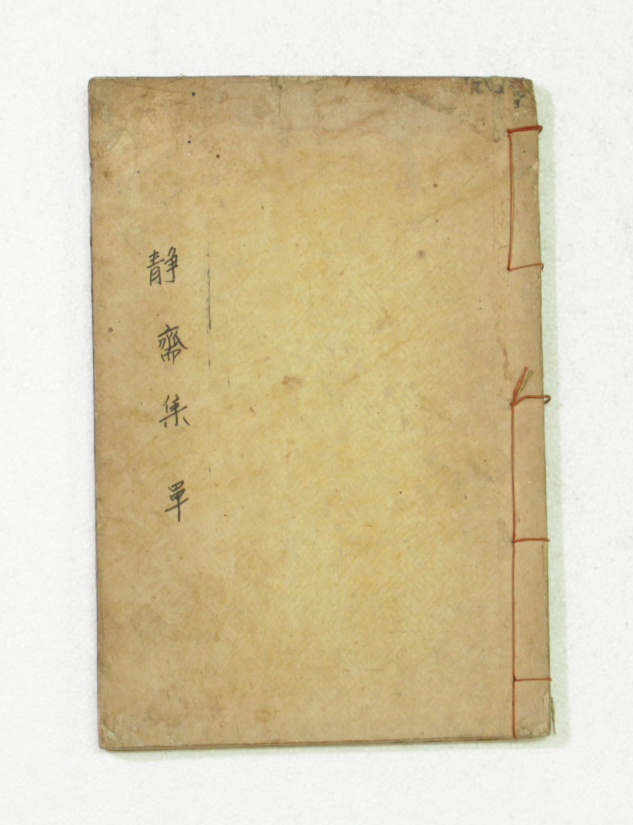 靜齋集 單